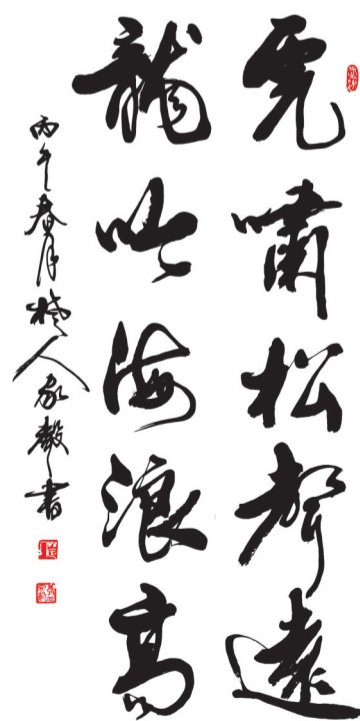 虎嘯松聲遠
龍吟海浪高
丙午春月楚人家毅書